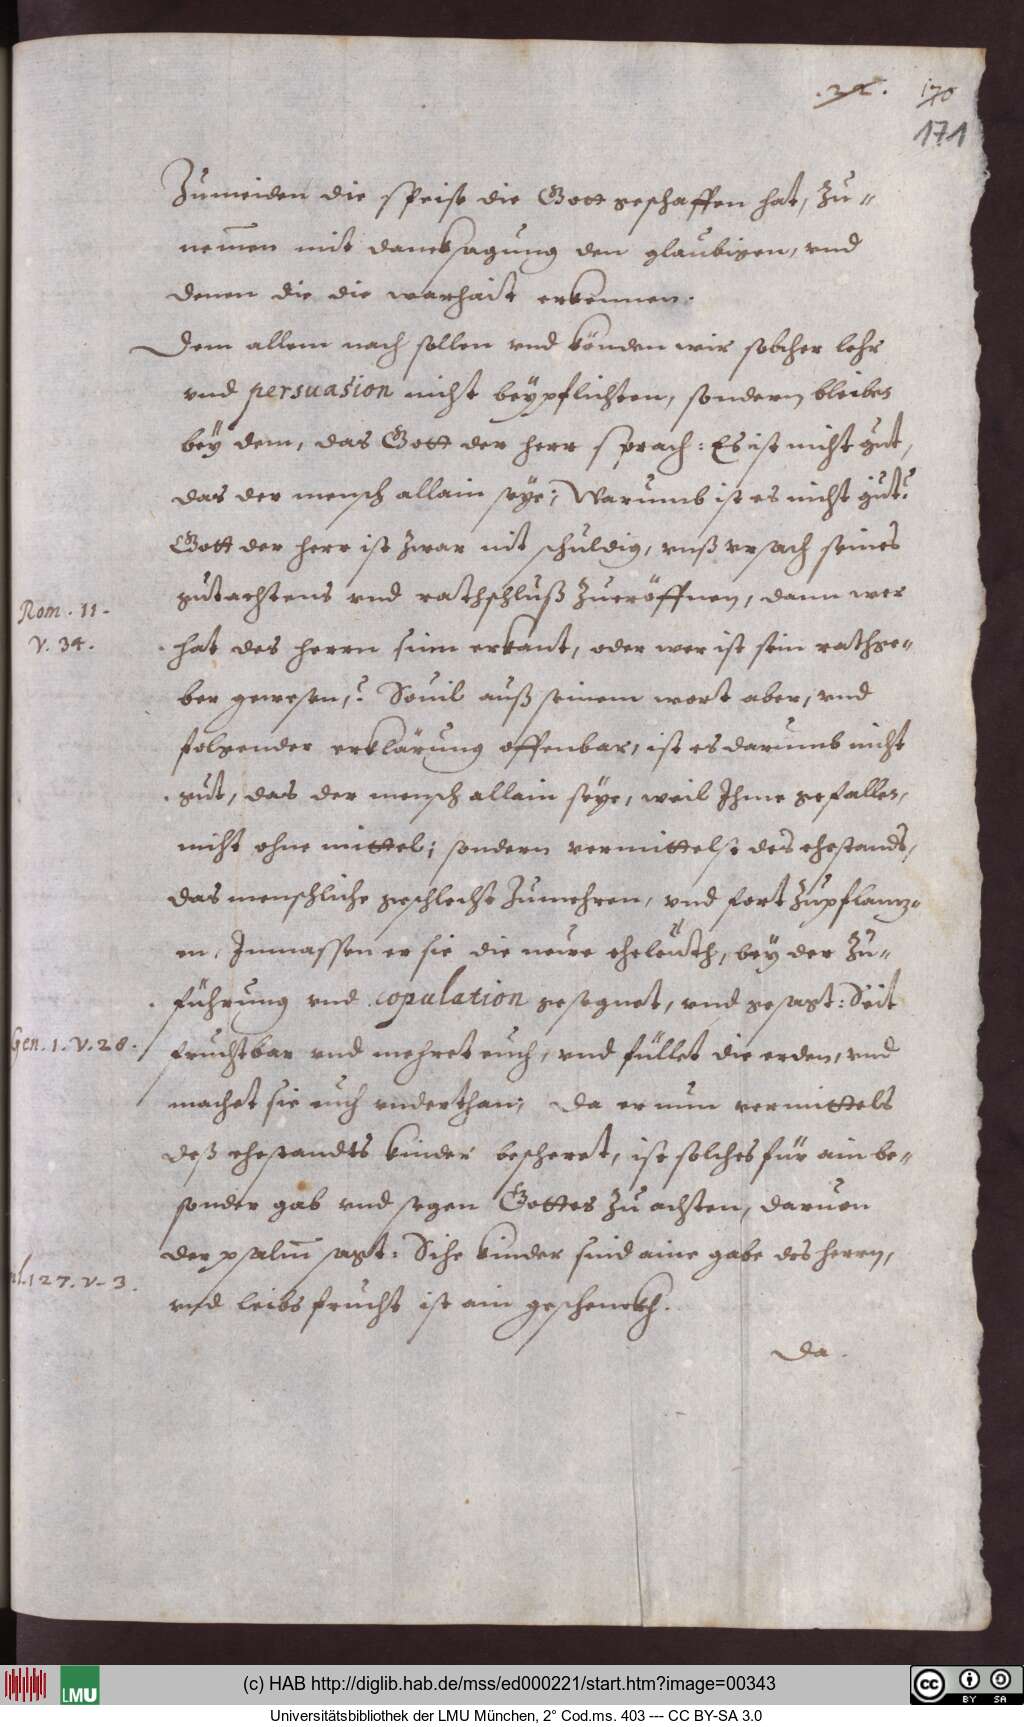 170
171
Zumeiden die speiß die Gott geschaffen hat, zu-
nem̄en mit dancksagung den glaubigen, vnd
denen die die warhait erkennen.
Dem allem nach sollen vnd könden wir solcher lehr
vnd persuasion nicht beÿpflichten, sondern bleiben
beÿ dem, das Gott der herr sprach: Es ist nicht gut,
das der mensch allain seÿe; Warumb ist es nicht gut?
Gott der herr ist zwar nit schuldig, vnß vrsach seines
gutachtens vnd rathschluß zueröffnen, dann wer
Rom. 11.
v. 34.
hat des herrn sinn erkant, oder wer ist sein rathge-
ber gewesen,? Souil auß seinem wort aber, vnd
folgender erklärung offenbar, ist es darumb nicht
gut, das der mensch allain seÿe, weil Ihme gefallen,
nicht ohne mittel; sondern vermittelst des ehestands,
das menschliche geschlecht zumehren, vnd fort zupflantz-
en, Inmassen er sie die newe eheleüth, beÿ der zu-
führung vnd copulation gesegnet, vnd gesagt: Seit
Gen. 1. v. 28.
fruchtbar vnd mehret euch, vnd füllet die erden, vnd
machet sie euch vnderthan; Da er nun vermittels
deß ehestandts kinder bescheret, ist solches für ain be-
sonder gab vnd segen Gottes zu achten, daruon
der psalm̄ sagt: Sihe kinder sind aine gabe des herrn,
127. v. 3.
vnd leibs frucht ist ain geschenckh.
Da.
LMU
(c) HAB http://diglib.hab.de/mss/ed000221/start.htm?image=00343
cc BY SA
Universitätsbibliothek der LMU München, 2° Cod.ms. 403 --- CC BY-SA 3.0